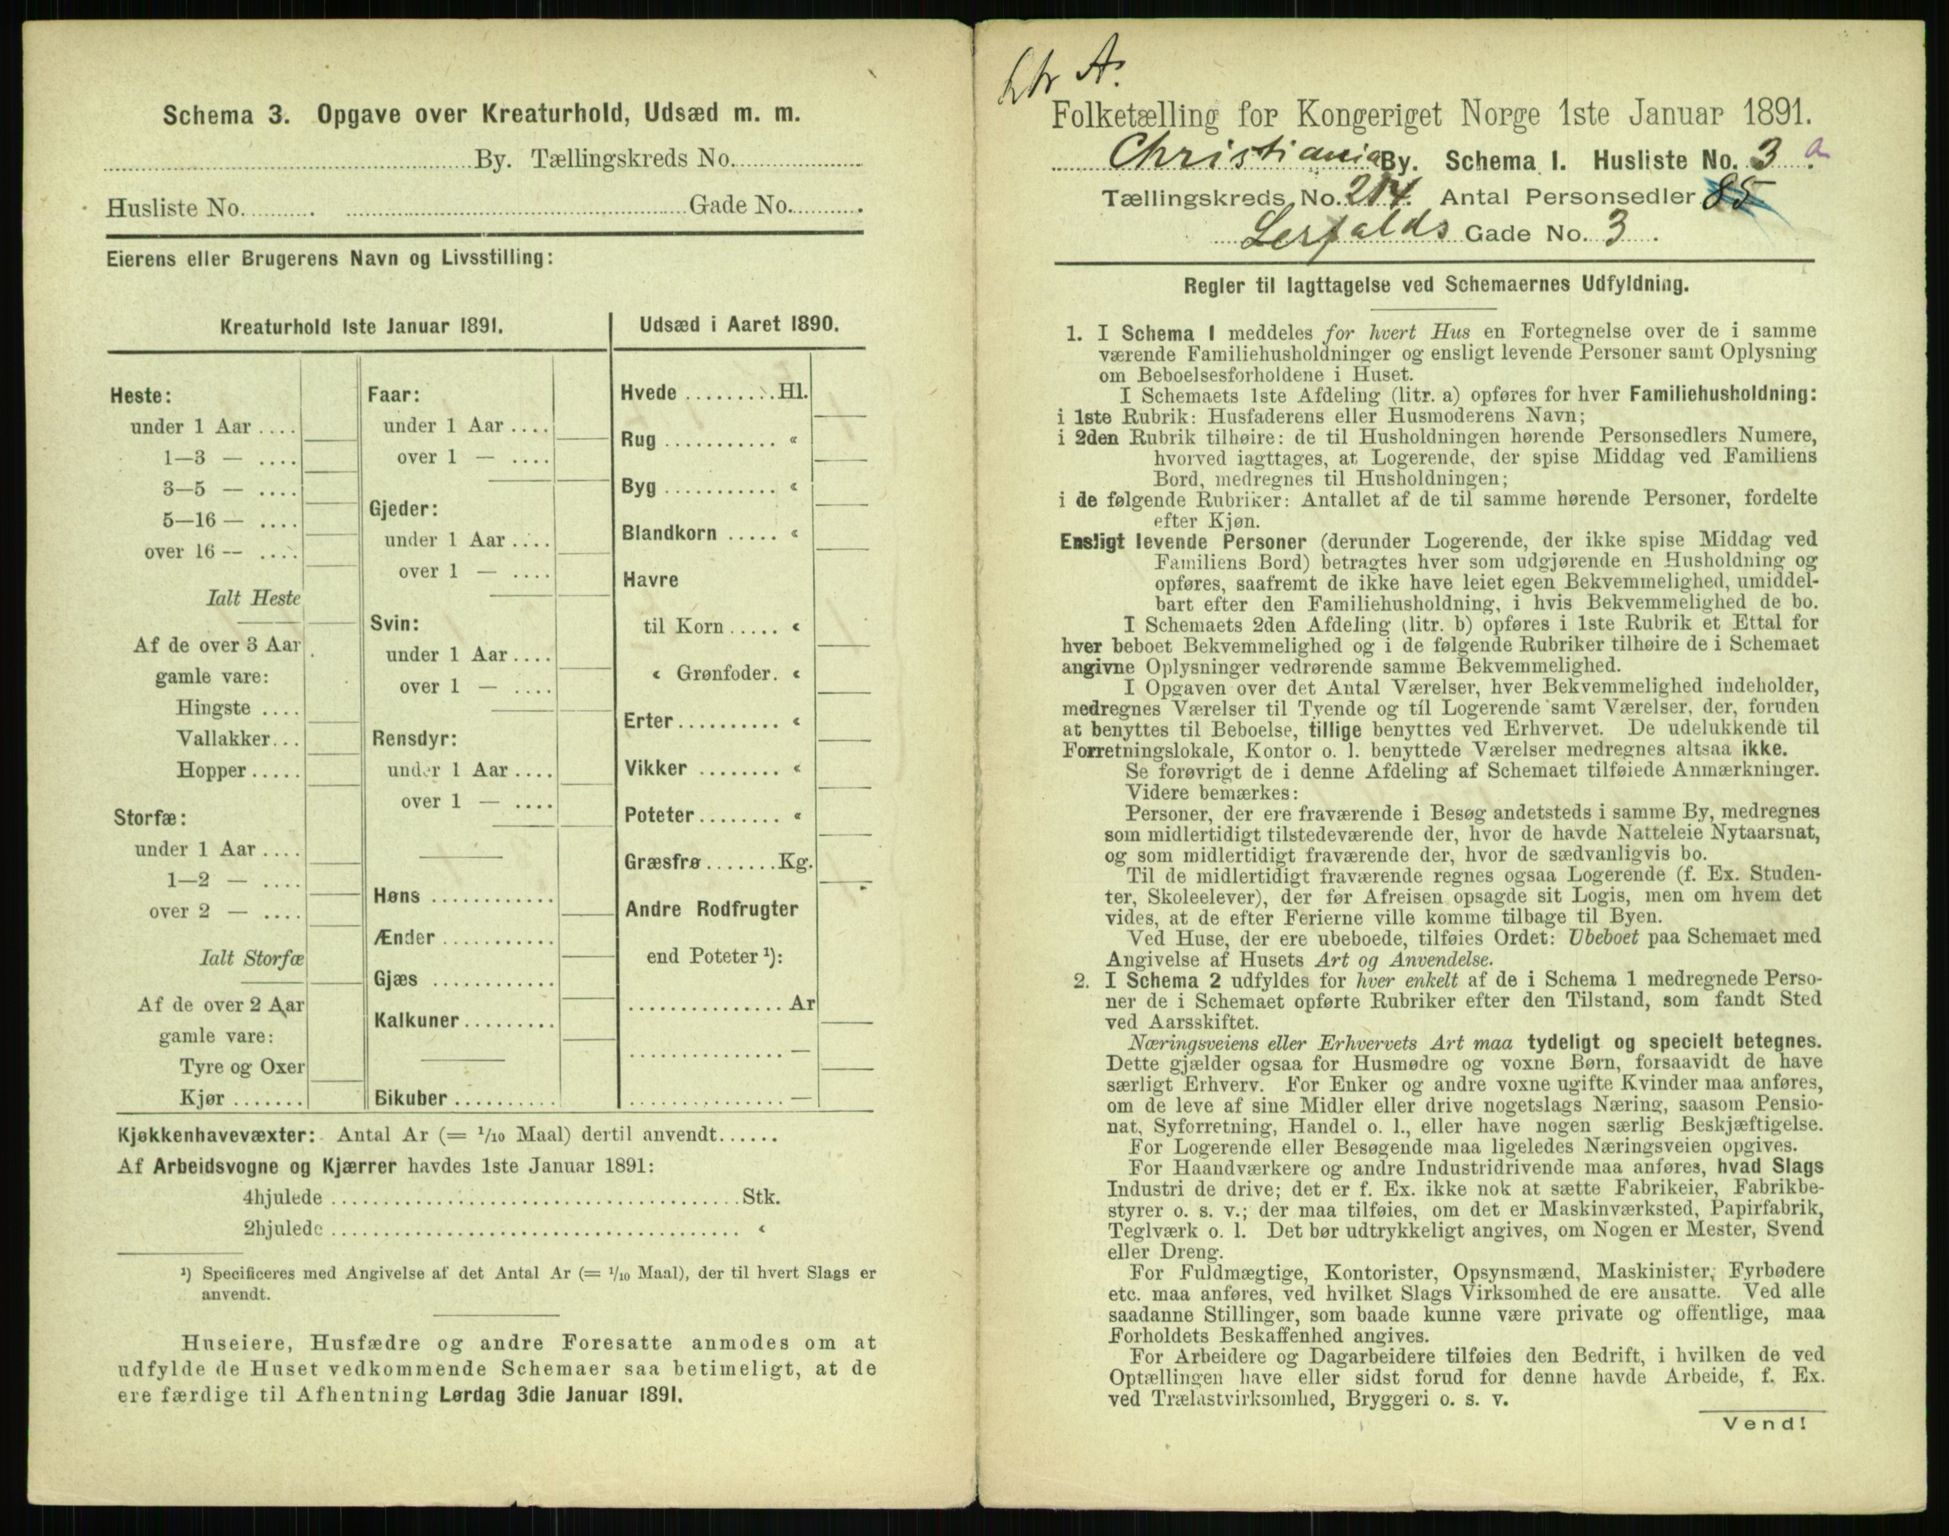 Schema 3. Opgave over Kreaturhold, Udsæd m. m.
By. Tællingskreds No.
Husliste No. Gade No.
Eierens eller Brugerens Navn og Livsstilling:
Kreaturhold 1ste Januar 1891.
Heste:
under 1 Aar
1—3 —
3—5 —
5—16 —
over 16 —
Ialt Heste
Af de over 3 Aar
gamle vare:
Hingste
Vallakker
Hopper
Storfæ:
under 1 Aar
1—2 —
over 2 —
Ialt Storfæ
Af de over 2 Aar
gamle vare:
Tyre og Oxer
Kjør
Faar:
under 1 Aar
over 1 —
Gjeder:
under 1 Aar
over 1 —
Svin:
under 1 Aar
over 1 —
Rensdyr:
under 1 Aar
over 1 —
Høns
Ænder
Gjæs
Kalkuner
Bikuber
Udsæd i Aaret 1890.
Hvede Hl.
Rug «
Byg «
Blandkorn «
Havre
til Korn «
« Grønfoder. «
Erter «
Vikker «
Poteter «
Græsfrø Kg.
Andre Rodfrugter
end Poteter ¹):
Ar
—
—
Kjøkkenhavevæxter: Antal Ar (= 1/10 Maal) dertil anvendt
Af Arbeidsvogne og Kjærrer havdes 1ste Januar 1891:
4hjulede Stk.
2hjulede «
¹) Specificeres med Angivelse af det Antal Ar (= 1/10 Maal), der til hvert Slags er
anvendt.
Huseiere, Husfædre og andre Foresatte anmodes om at
udfylde de Huset vedkommende Schemaer saa betimeligt, at de
ere færdige til Afhentning Lørdag 3die Januar 1891.
Ltr A.
Folketælling for Kongeriget Norge 1ste Januar 1891.
Christiania By. Schema 1. Husliste No. 3 a
Tællingskreds No. 214. Antal Personsedler 85
Lerfalds Gade No. 3.
Regler til Iagttagelse ved Schemaernes Udfyldning.
1. I Schema 1 meddeles for hvert Hus en Fortegnelse over de i samme
værende Familiehusholdninger og ensligt levende Personer samt Oplysning
om Beboelsesforholdene i Huset.
I Schemaets 1ste Afdeling (litr. a) opføres for hver Familiehusholdning:
i 1ste Rubrik: Husfaderens eller Husmoderens Navn;
i 2den Rubrik tilhøire: de til Husholdningen hørende Personsedlers Numere,
hvorved iagttages, at Logerende, der spise Middag ved Familiens
Bord, medregnes til Husholdningen;
i de følgende Rubriker: Antallet af de til samme hørende Personer, fordelte
efter Kjøn.
Ensligt levende Personer (derunder Logerende, der ikke spise Middag ved
Familiens Bord) betragtes hver som udgjørende en Husholdning og
opføres, saafremt de ikke have leiet egen Bekvemmelighed, umiddel-
bart efter den Familiehusholdning, i hvis Bekvemmelighed de bo.
I Schemaets 2den Afdeling (litr. b) opføres i 1ste Rubrik et Ettal for
hver beboet Bekvemmelighed og i de følgende Rubriker tilhøire de i Schemaet
angivne Oplysninger vedrørende samme Bekvemmelighed.
I Opgaven over det Antal Værelser, hver Bekvemmelighed indeholder,
medregnes Værelser til Tyende og til Logerende samt Værelser, der, foruden
at benyttes til Beboelse, tillige benyttes ved Erhvervet. De udelukkende til
Forretningslokale, Kontor o. l. benyttede Værelser medregnes altsaa ikke.
Se forøvrigt de i denne Afdeling af Schemaet tilføiede Anmærkninger.
Videre bemærkes:
Personer, der ere fraværende i Besøg andetsteds i samme By, medregnes
som midlertidigt tilstedeværende der, hvor de havde Natteleie Nytaarsnat,
og som midlertidigt fraværende der, hvor de sædvanligvis bo.
Til de midlertidigt fraværende regnes ogsaa Logerende (f. Ex. Studen-
ter, Skoleelever), der før Afreisen opsagde sit Logis, men om hvem det
vides, at de efter Ferierne ville komme tilbage til Byen.
Ved Huse, der ere ubeboede, tilføies Ordet: Ubeboet paa Schemaet med
Angivelse af Husets Art og Anvendelse.
2. I Schema 2 udfyldes for hver enkelt af de i Schema 1 medregnede Perso-
ner de i Schemaet opførte Rubriker efter den Tilstand, som fandt Sted
ved Aarsskiftet.
Næringsveiens eller Erhvervets Art maa tydeligt og specielt betegnes.
Dette gjælder ogsaa for Husmødre og voxne Børn, forsaavidt de have
særligt Erhverv. For Enker og andre voxne ugifte Kvinder maa anføres,
om de leve af sine Midler eller drive nogetslags Næring, saasom Pensio-
nat, Syforretning, Handel o. l., eller have nogen særlig Beskjæftigelse.
For Logerende eller Besøgende maa ligeledes Næringsveien opgives.
For Haandværkere og andre Industridrivende maa anføres, hvad Slags
Industri de drive; det er f. Ex. ikke nok at sætte Fabrikeier, Fabrikbe-
styrer o. s. v.; der maa tilføies, om det er Maskinværksted, Papirfabrik,
Teglværk o. l. Det bør udtrykkeligt angives, om Nogen er Mester, Svend
eller Dreng.
For Fuldmægtige, Kontorister, Opsynsmænd, Maskinister, Fyrbødere
etc. maa anføres, ved hvilket Slags Virksomhed de ere ansatte. Ved alle
saadanne Stillinger, som baade kunne være private og offentlige, maa
Forholdets Beskaffenhed angives.
For Arbeidere og Dagarbeidere tilføies den Bedrift, i hvilken de ved
Optællingen have eller sidst forud for denne havde Arbeide, f. Ex.
ved Trælastvirksomhed, Bryggeri o. s. v.
Vend!